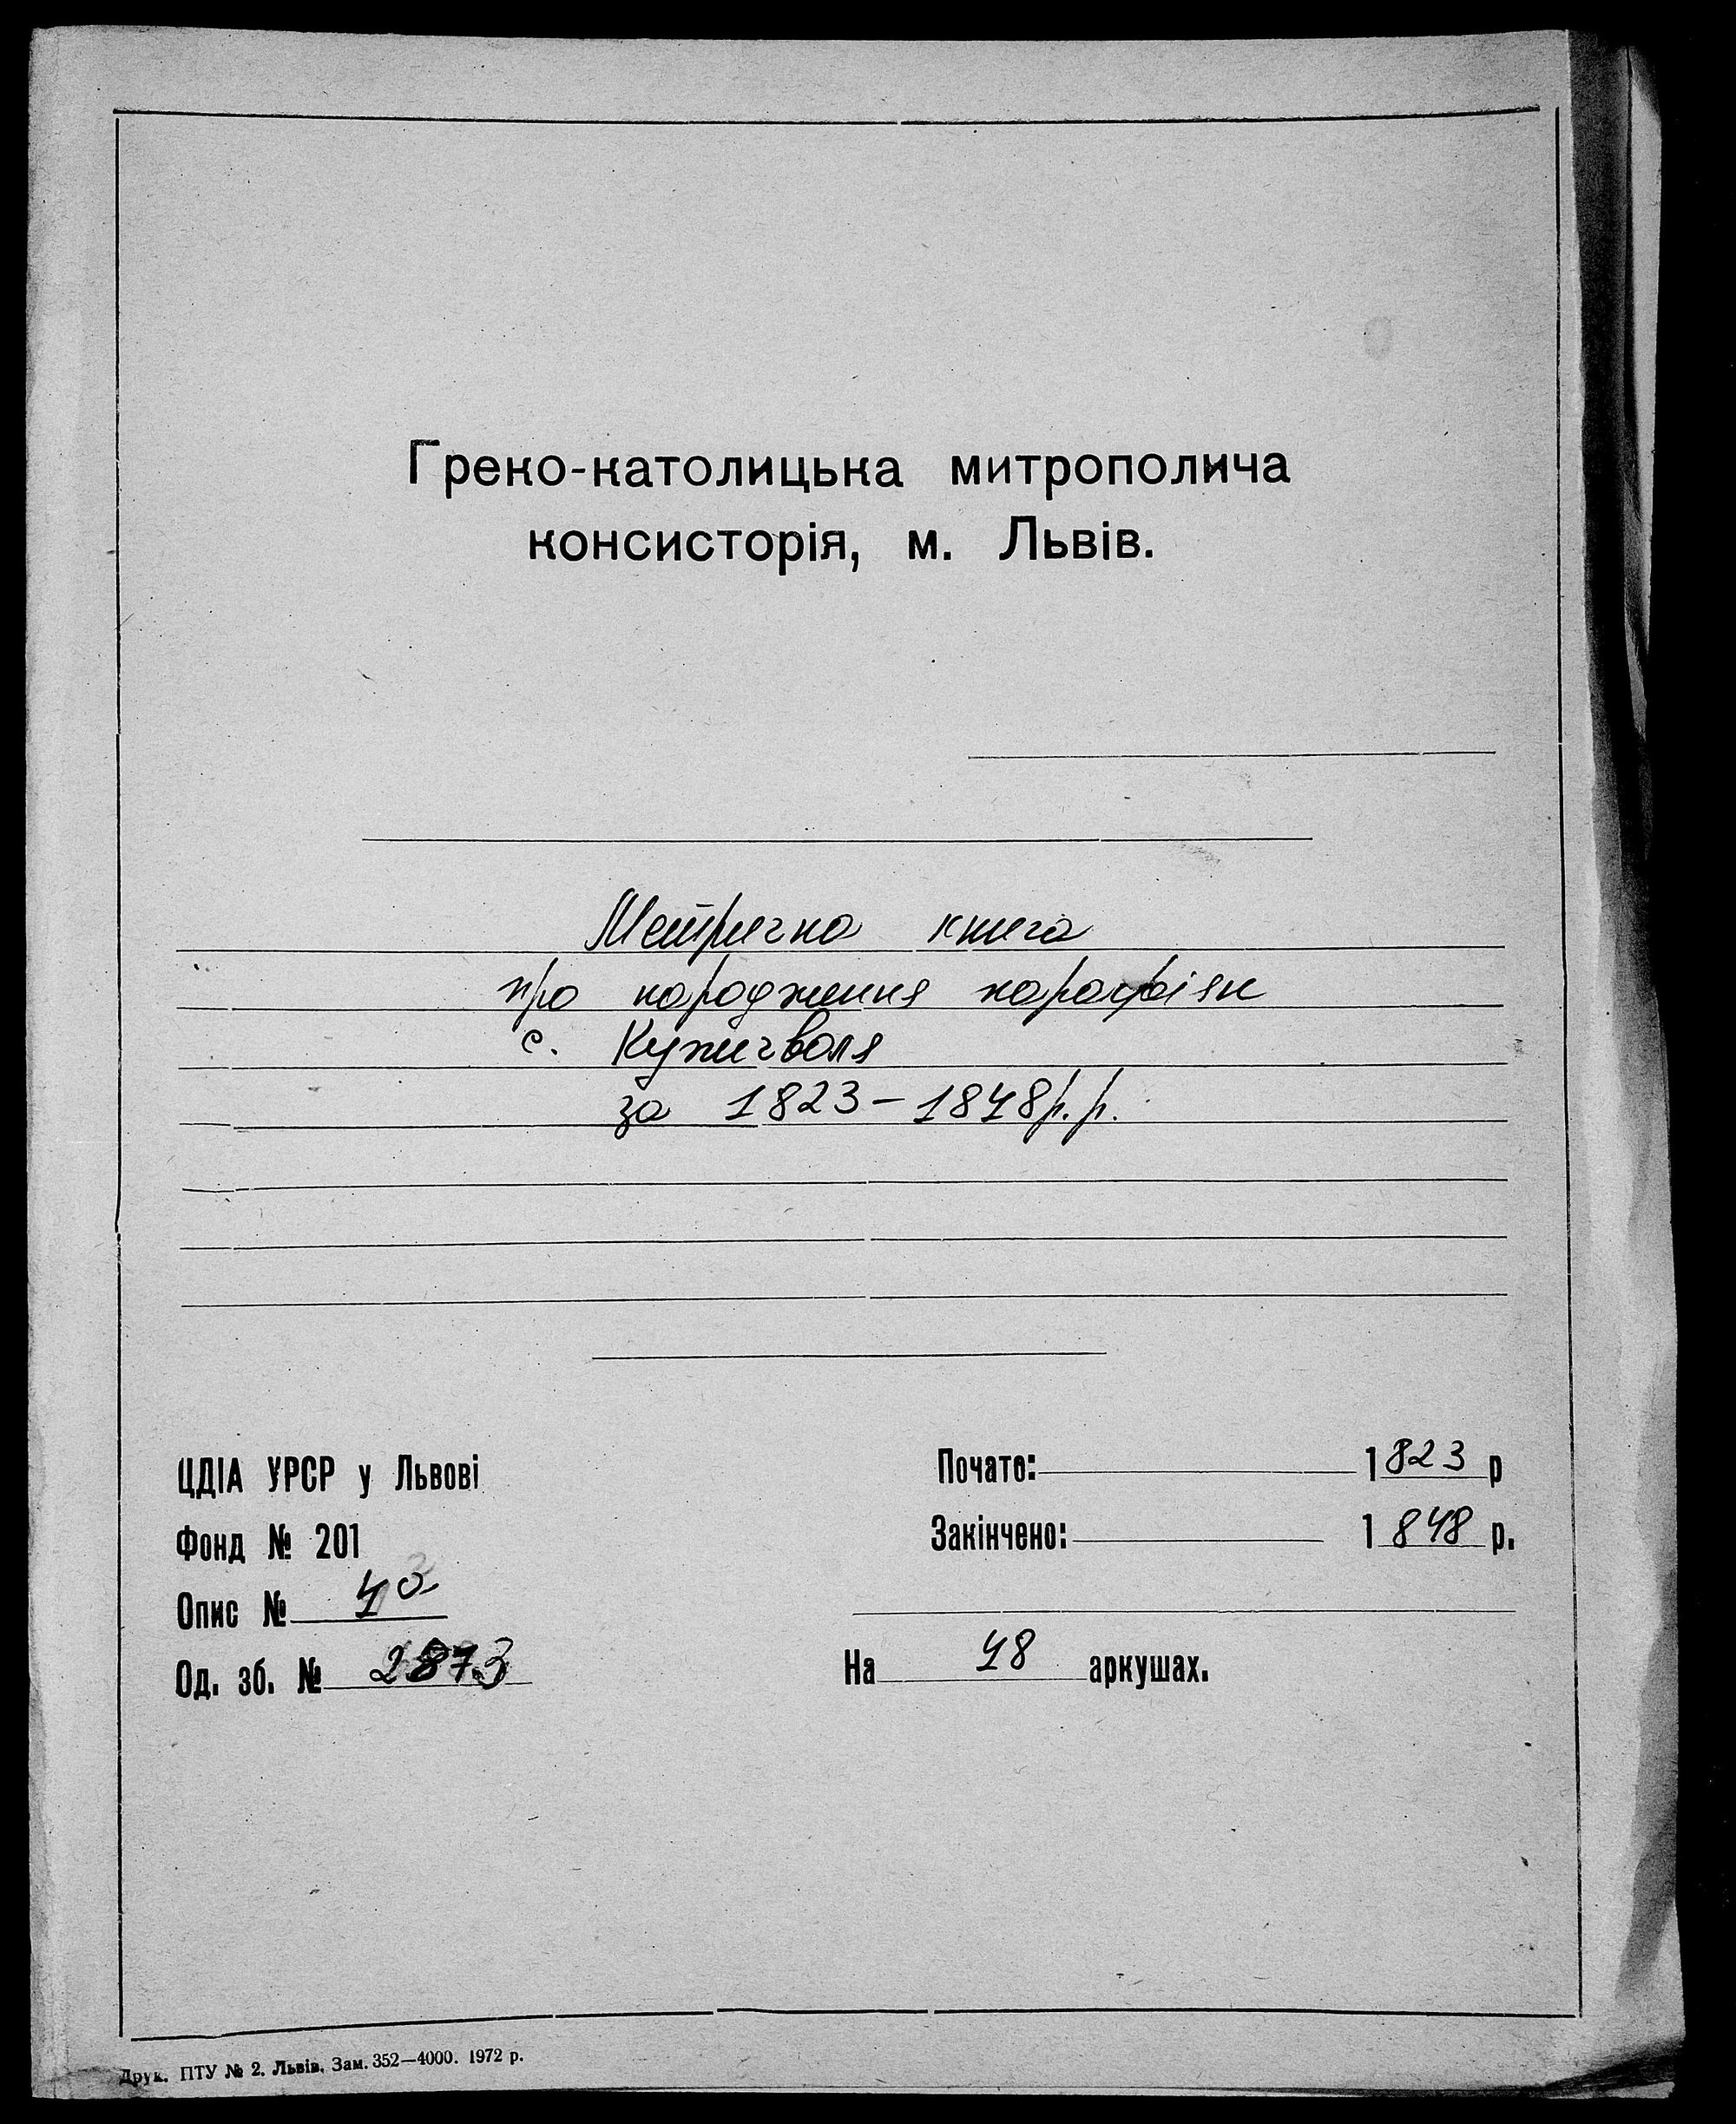 Греко-католицька митрополича
консисторія, м. Львів.
Метрична книга
про народження парафіян
с. Кужичволя
за 1823-1848 р.р.
ЦДІА УРСР у Львові
Фонд № 201
Опис №
Од. зб. № 2873
Почато: 1823 р
Закінчено: 1848 р.
На 48 аркушах.
Друк. ПТУ № 2. Львів. Зам. 352—4000. 1972 р.